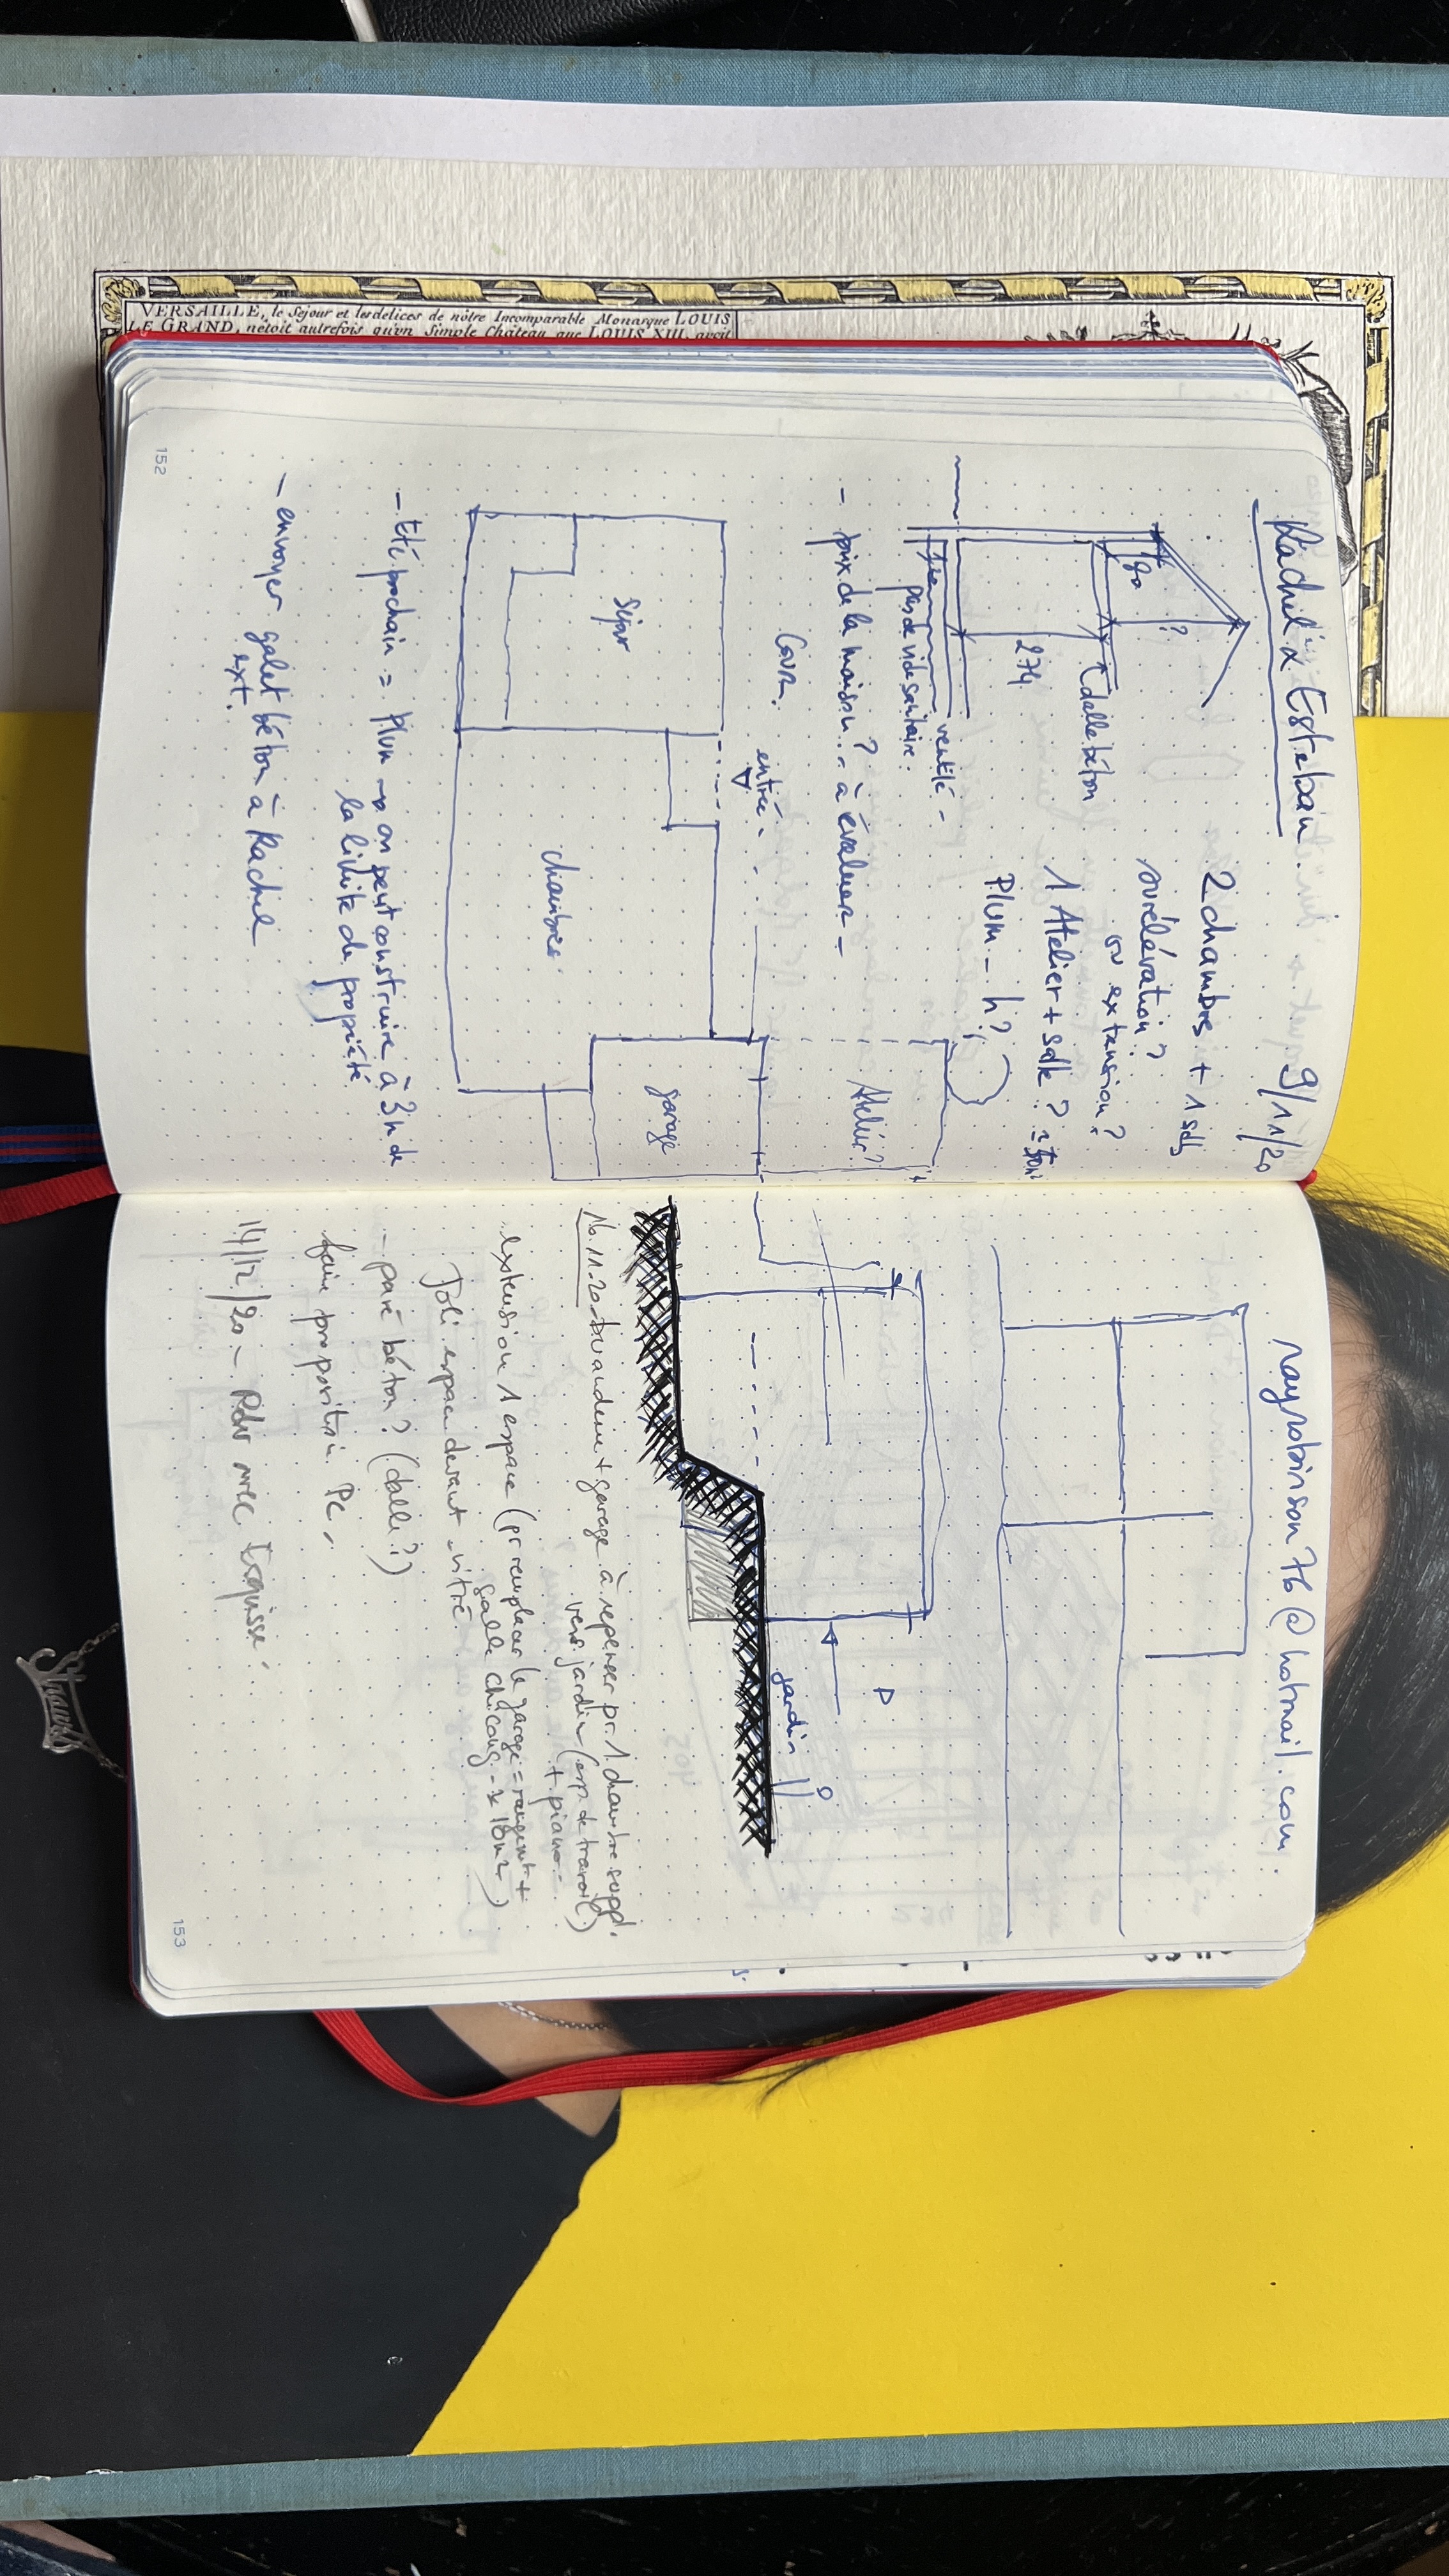 VERSAILLE, le Sejour et les delices de nôtre Incomparable Monarque LOUIS
LE GRAND, n'etoit autrefois qu'un Simple Château que LOUIS XIII. avoit
Rachel & Esteban. 9/11/20
2 chambres + 1 sdb
surélévation?
ou extension?
1 Atelier + salle?
PLUM - h?
80
?
dalle béton
274
ventilé -
pas de vide sanitaire.
- prix de la maison? à évaluer -
Cour.
entrée.
Atelier?
séjour
chambres.
garage
- été prochain = PLUM → on peut construire à 3m de
la limite de propriété.
- envoyer galet béton à Rachel
ext.
152
rayrobinson76@hotmail.com.
jardin
16.11.20 - buanderie + garage à repenser pr. 1 chambre suppl.
vers jardin (esp. de travail)
+ piano -
extension 1 espace (pr remplacer le garage = rangement +
salle → 18m2)
Joli espace devant vitré
- pavé béton? (dalle?)
faire proposition PC.
14/12/20 - RDV avec Esquisse.
153